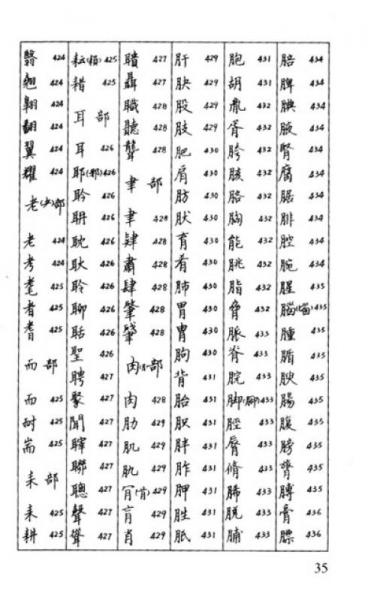 翳 424
翹 424
翱 424
翻 424
翼 424
耀 424
老(耂)部
老 424
考 424
耄 425
者 425
耆 425
而 部
而 425
耐 425
耑 425
耒 部
耒 425
耕 425
耘(頛) 425
耤 425
耳 部
耳 426
耶(鄁) 426
耹 426
耼 426
耽 426
耿 426
聆 426
聊 426
聒 426
聖 426
聘 427
聚 427
聞 427
聯 427
聰 427
聲 427
聳 427
聵 427
聶 427
職 428
聽 428
聾 428
聿 部
聿 428
肆 428
肅 428
肆 428
肇 428
肉 部
肉 428
肋 429
肌 429
肎(肯) 429
肓 429
肖 429
肝 429
肤 429
股 429
肢 429
肥 430
肩 430
肪 430
肰 430
育 430
肴 430
肺 430
胃 430
胄 430
胊 430
背 431
胎 431
胖 431
胙 431
胛 431
胜 431
胝 431
胞 431
胡 431
胤 432
胥 432
胯 432
胲 432
胳 432
胸 432
能 432
脁 432
脂 432
脅 432
脈 433
脊 433
脘 433
脚(腳) 433
脛 433
脣 433
脩 433
脪 433
脫 433
脯 433
腤 434
脾 434
腆 434
腋 434
腎 434
腐 434
腒 434
腓 434
腔 434
腕 434
腥 435
腦 435
腫 435
腯 435
腴 435
腸 435
腹 435
膀 435
膂 435
膊 435
膏 436
膘 436
35